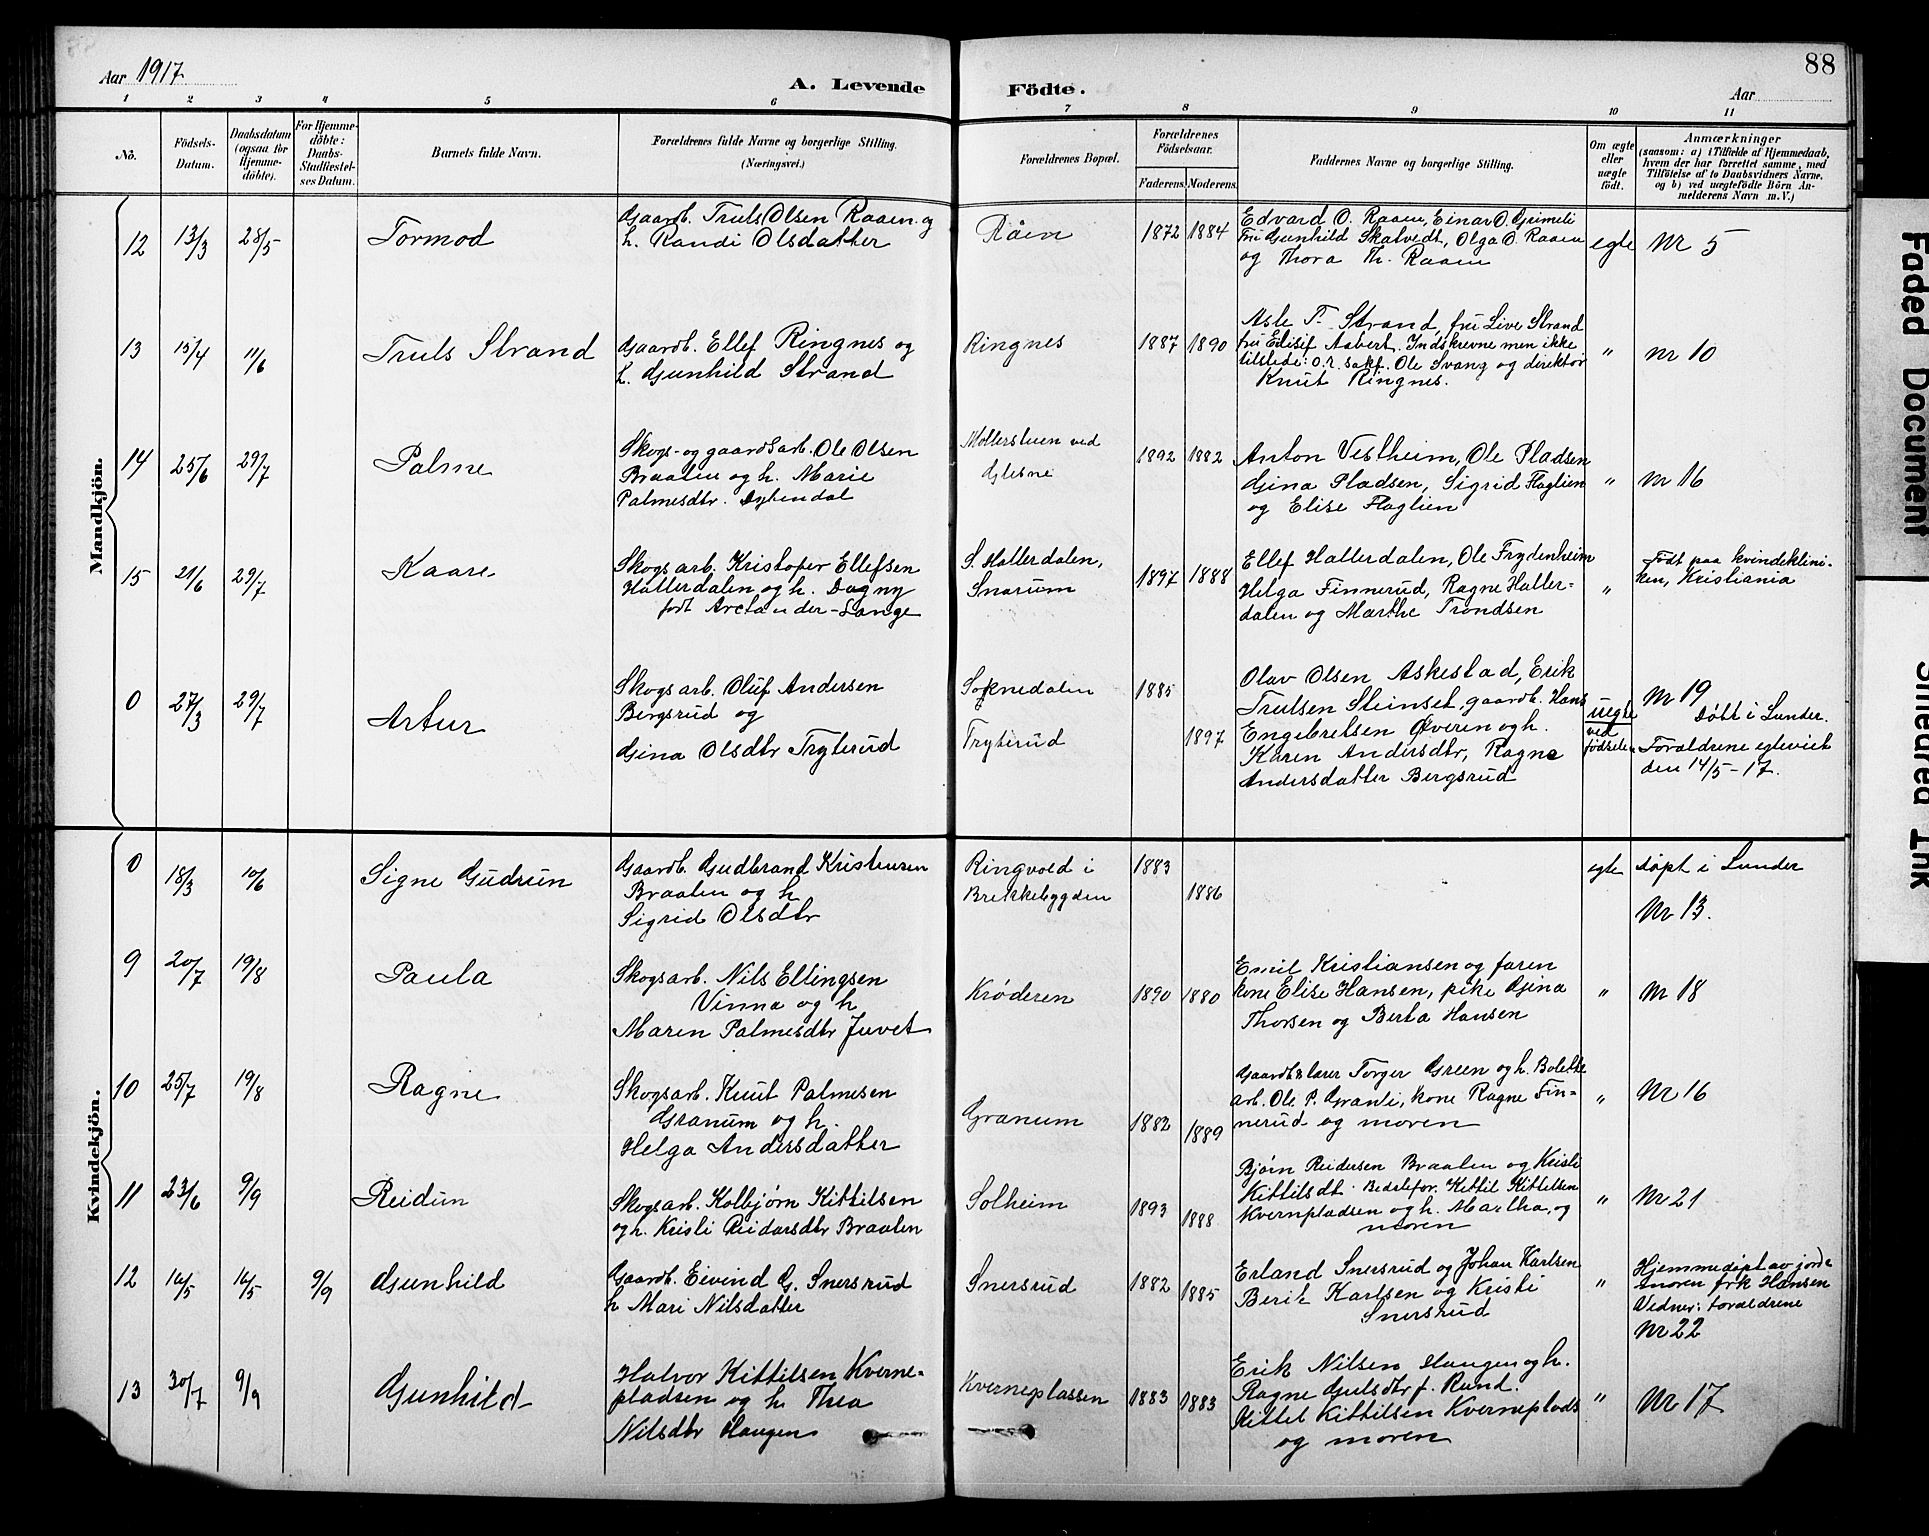 88
Aar 1917
A. Levende
Fødte.
Aar
1 2 3 4 5 6 7 8 9 10 11
No.
Födsels-
Datum.
Daabsdatum
(ogsaa for
Hjemme-
döbte).
For Hjemme-
döbte:
Daabs-
Stadfæstel-
ses Datum.
Barnets fulde Navn.
Forældrenes fulde Navne og borgerlige Stilling.
(Næringsvei.)
Forældrenes Bopæl.
Forældrenes
Födselsaar.
Faderens. Moderens.
Faddernes Navne og borgerlige Stilling.
Om ægte
eller
uægte
født.
Anmærkninger
(saasom: a) i Tilfælde af Hjemmedaab,
hvem der har forrettet samme, med
Tilföielse af to Daabsvidners Navne,
og b) ved uægtefödte Börn An-
melderens Navn m. V.)
Mandkjön.
12 13/3 28/5 Tormod
Gaardb. Truls Olsen Raaen og
h. Randi Olsdatter
Råen 1872 1884
Edvard O. Raaen, Einar O. Grimeli
Fru Gunhild Skatvedt, Olga O. Raaen
og Thora Th. Raaen
egte Nr 5
13 15/4 11/6 Truls Strand
Gaardb. Ellef Ringnes og
h. Gunhild Strand
Ringnes 1887 1890
Asle T. Strand, fru Live Strand
fru Elisif Aabert. Indskrevne men ikke
tilstede: o.r. sakf. Ole Svang og direktør
Knut Ringnes.
" nr 10
14 25/6 29/7 Palme
Skogs- og gaardsarb. Ole Olsen
Braaten og h. Marie
Palmesdtr. Dybendal
Mollerstuen ved
Glesne
1892 1882
Anton Vestheim, Ole Pladsen
Gina Pladsen, Sigrid Flaglien
og Elise Flaglien
" Nr 16
15 21/6 29/7 Kaare
Skogsarb. Kristofer Ellefsen
Hallerdalen og h. Dagny
født Arctander-Lange
S. Hallerdalen,
Snarum
1897 1888
Ellef Hallerdalen, Ole Frydenheim
Helga Finnerud, Ragne Haller-
dalen og Marthe Trondsen
"
Født paa kvindeklini-
ken, Kristiania
0 27/3 29/7 Artur
Skogsarb. Oluf Andersen
Bergsrud og
Gina Olsdtr Tryterud
Soknedalen
Tryterud
1885
1897
Olav Olsen Askestad, Erik
Trulsen Steinset, gaardb. Hans
Engebretsen Øveren og h.
Karen Andersdtr, Ragne
Andersdatter Bergsrud
uegte
ved
fødselen
Nr 19
Døbt i Lunder.
Forældrene egteviet
den 14/5-17.
Kvindekjön.
0 18/3 10/6 Signe Gudrun
Gaardb. Gudbrand Kristensen
Braaten og h
Sigrid Olsdtr
Ringvold i
Brekkebygden
1883
1886
egte døpt i Lunder
Nr 13.
9 20/7 19/8 Paula
Skogsarb. Nils Ellingsen
Vinna og h
Maren Palmesdtr Juvet
Krøderen 1890 1880
Emil Kristiansen og faren
kone Elise Hansen, pike Gina
Thorsen og Berta Hansen
" Nr 18
10 25/7 19/8 Ragne
Skogsarb. Knut Palmesen
Granum og h.
Helga Andersdatter
Granum 1882 1889
Gaardb & lærer Torger Green og h. Bolette
arb. Ole P. Granli, kone Ragne Fin-
nerud og moren
" Nr 16
11 23/6 9/9 Reidun
Skogsarb. Kolbjørn Kittilsen
og h. Kristi Reidarsdtr Braaten
Solheim 1893 1888
Bjørn Reidersen Braaten og Kristi
Kittilsdt. Bedstefor. Kittil Kittelsen
Kvernpladsen og h. Martha, og
moren
" Nr 21
12 14/5 14/5 9/9 Gunhild
Gaardb. Eivind G. Snersrud
h Mari Nilsdatter
Snersrud 1882 1885
Erland Snersrud og Johan Karlsen
Berit Karlsen og Kristi
Snersrud
"
Hjemmedøpt av jord-
moren frk Hansen
Vidner: forældrene
Nr 22
13 30/7 9/9 Gunhild
Halvor Kittilsen Kverne-
pladsen og h. Thea
Nilsdtr Haugen
Kverneplassen 1883 1883
Erik Nilsen Haugen og h.
Ragne Gulsdtr f. Rund.
Kittel Kittilsen Kverneplads
og moren
" Nr 17
Faded Document
Smeared Ink